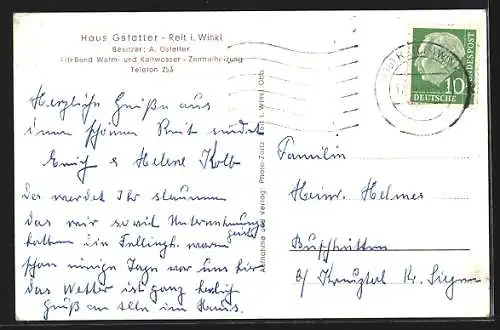 Haus Gstatter - Reit i. Winkl
Besitzer: A. Gstatter
Fließend Warm- und Kaltwasser - Zentralheizung
Telefon 253
Herzliche Grüße aus
dem schönen Reit sendet
Erich & Helene Kolb
Da werdet Ihr staunen
das wir soviel Unternehmungsgeist
hatten. Die Fallingb. waren
schon einige Tage vor uns hier
das Wetter ist ganz herrlich
Gruß an alle im Haus.
Aufnahme und Verlag: Photo-Zeitz Reit i. Winkl Obb.
DEUTSCHE
BUNDESPOST
10
Familie
Heinr. Helmes
Buschhütten
b/ Kreuztal Kr. Siegen